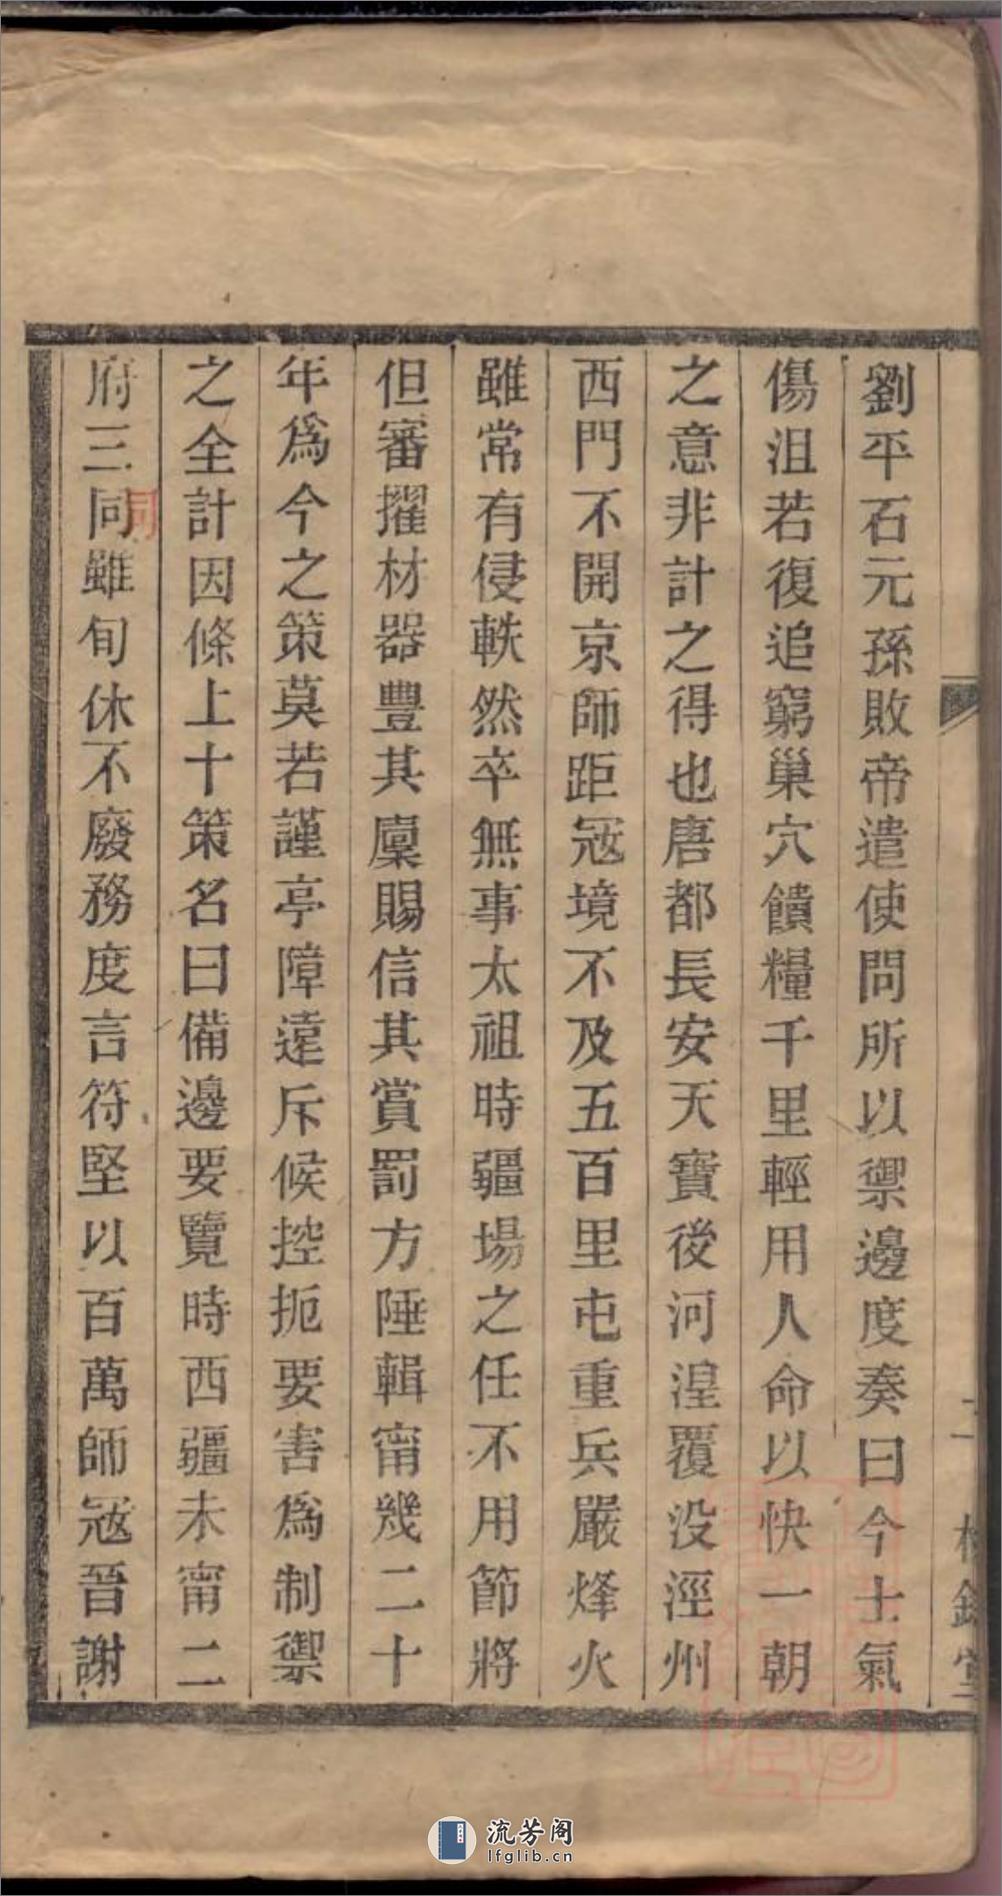 劉平石元孫敗帝遣使問所以禦邊度奏曰今士氣
傷沮若復追窮巢穴饋糧千里輕用人命以快一朝
之意非計之得也唐都長安天寶後河湟覆没涇州
西門不開京師距冦境不及五百里屯重兵嚴烽火
雖常有侵軼然卒無事太祖時疆場之任不用節將
但審擢材器豐其廩賜信其賞罰方陲輯甯幾二十
年爲今之策莫若謹亭障遠斥候控扼要害爲制禦
之全計因條上十策名曰備邊要覽時西疆未甯二
府三同雖旬休不廢務度言符堅以百萬師冦晉謝
同
流芳阁
lfglib.cn